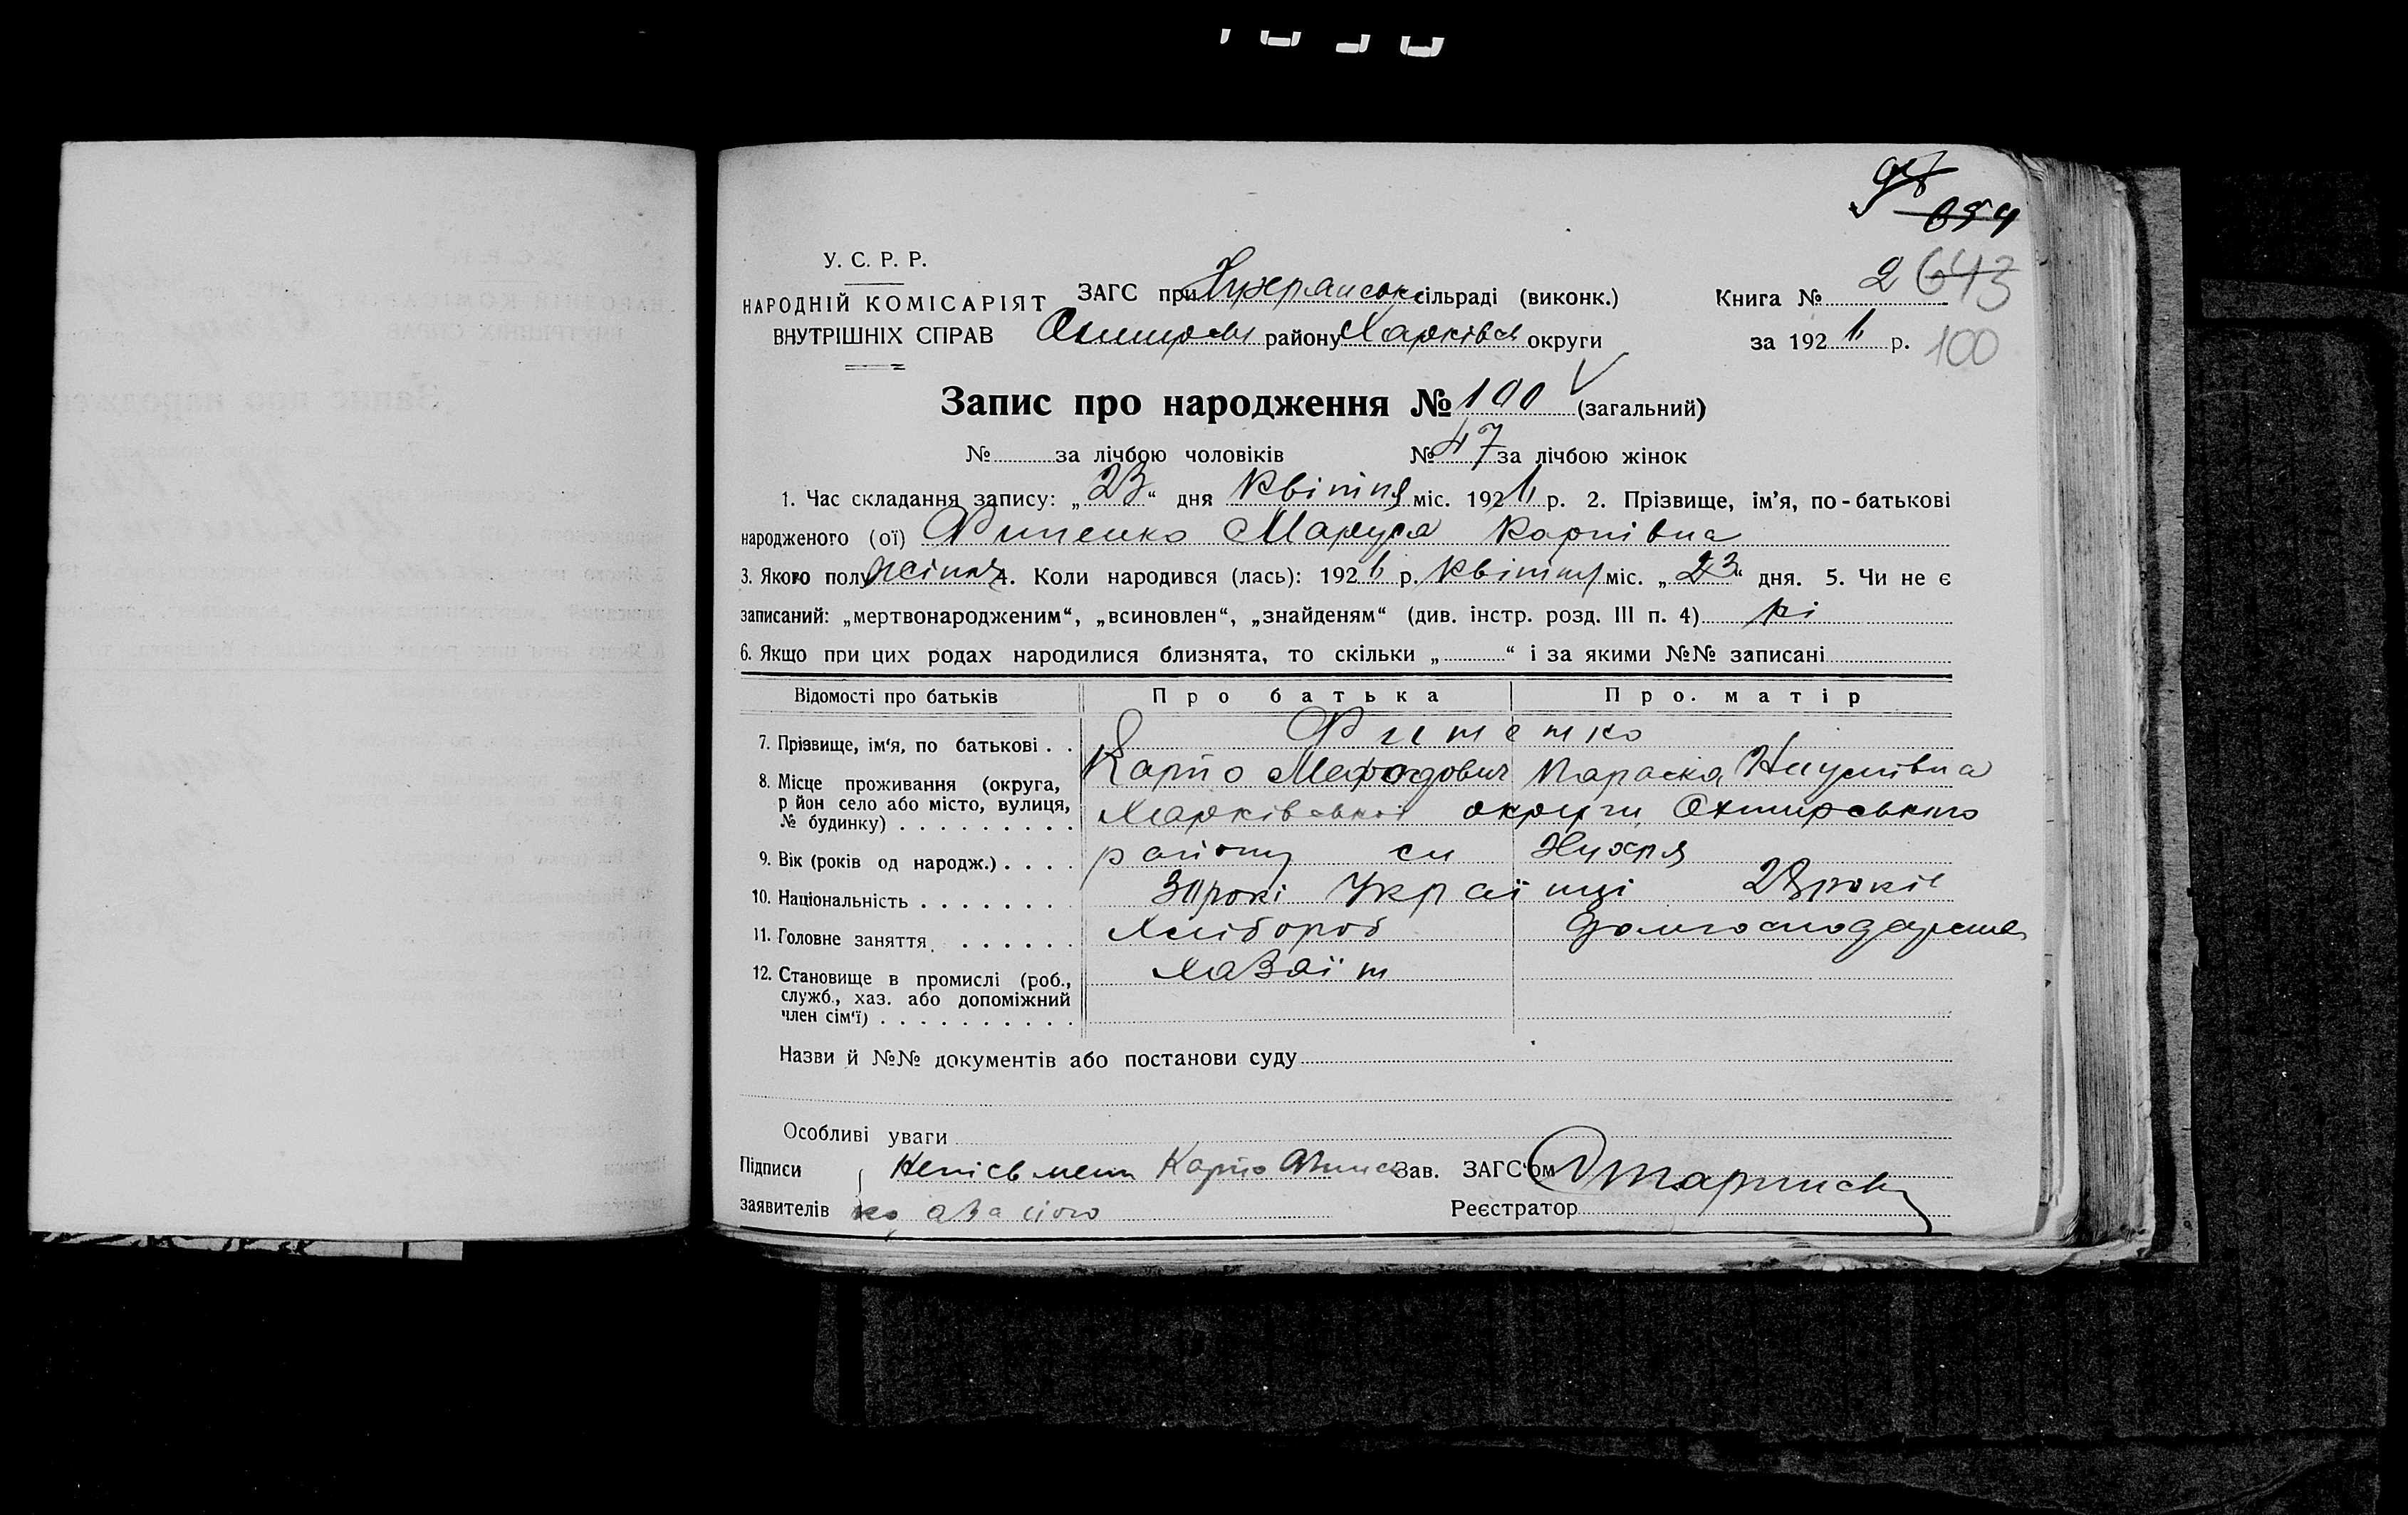 654
У. С. Р. Р.
НАРОДНІЙ КОМІСАРІЯТ
ВНУТРІШНІХ СПРАВ
ЗАГС при Хухрянськ сільраді (виконк.)
району Харківськ округи
Книга № 2 643
за 1926 р. 100
Запис про народження № 100 (загальний)
№ за лічбою чоловіків № 47 за лічбою жінок
1. Час складання запису: „23“ дня квітня міс. 1926 р. 2. Прізвище, ім’я, по-батькові
народженого (ої) Маруся Карпівна
3. Якого полу жіноч 4. Коли народився (лась): 1926 р. квітня міс. „23“ дня. 5. Чи не є
записаний: „мертвонародженим“, „всиновлен“, „знайденям“ (див. інстр. розд. III п. 4) ні
6. Якщо при цих родах народилися близнята, то скільки „ “ і за якими №№ записані
Відомості про батьків Про батька Про. матір
7. Прізвище, ім‘я, по батькові . .
Карпо Мефодович Параска Наумівна
8. Місце проживання (округа,
р йон село або місто, вулиця,
№ будинку) . . . . . . . . .
Харківської округи Охтирського
9. Вік (років од народж.) . . . .
району Хухря
10. Національність . . . . . . .
Українці 28 років
11. Головне заняття . . . . . .
Хлібороб домгосподарка
12. Становище в промислі (роб.,
служб., хаз. або допоміжний
член сім‘ї) . . . . . . . . . .
Хазяїн
Назви й №№ документів або постанови суду
Особливі уваги
Підписи
заявителів
Неписьмен Карпо
Зав. ЗАГС‘ом
Реєстратор